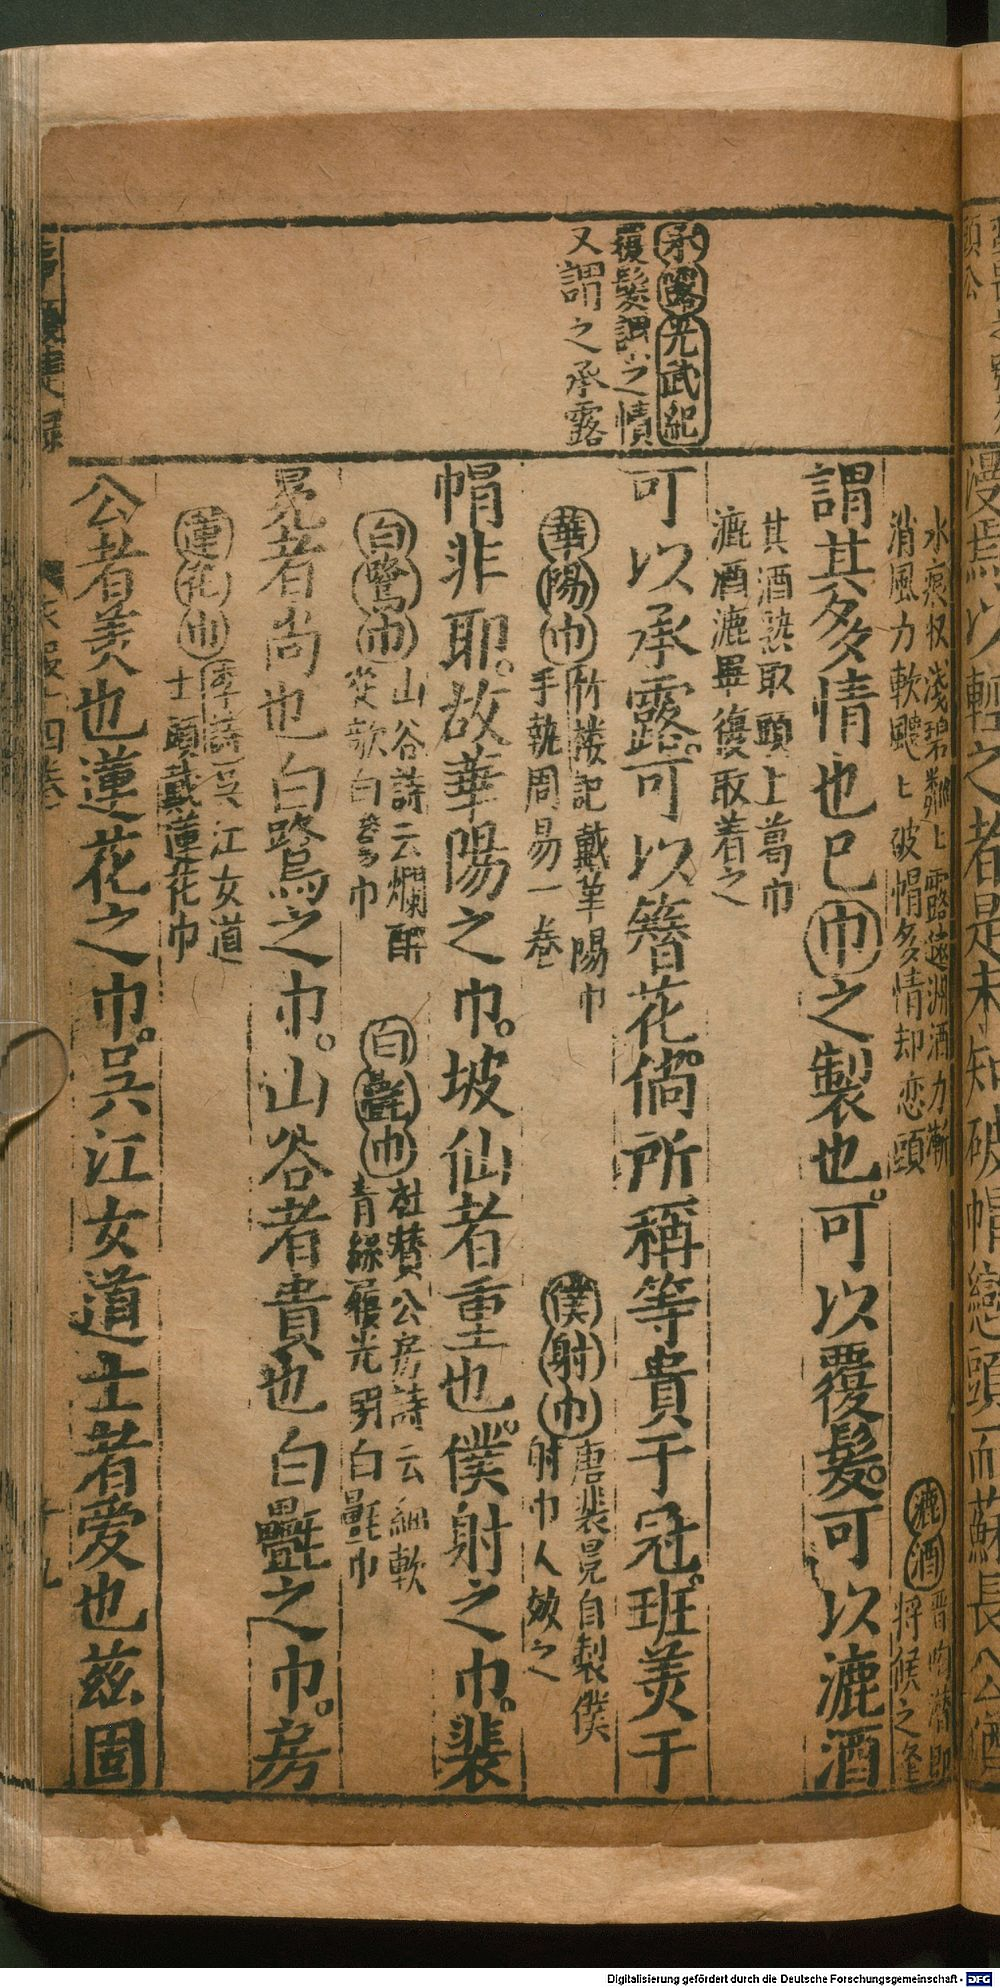 承露光武紀
覆髮謂之幘
又謂之承露
水痕收淺碧粼上露遠洲酒力漸
消風力軟颼〻破帽多情却恋頭
漉酒
晋陶潛郡
将候之逢
謂其多情也已巾之製也可以覆髮可以漉酒
其酒熟取頭上葛巾
漉酒漉畢復取着之
可以承露可以簪花倘所稱等貴于冠班美于
華陽巾
竹楼記戴華陽巾
手執周易一巻
僕射巾
唐裴冕自製僕
射巾人效之
帽非耶故華陽之巾坡仙者重也僕射之巾裴
白鷺巾
山谷詩云爛醉
從歌白鷺巾
白氎巾
杜贊公房詩云細軟
青絲履光明白氎巾
冕者尚也白鷺之巾山谷者貴也白氎之巾房
蓮花巾
李詩吳江女道
士頭戴蓮花巾
公者美也蓮花之巾吳江女道士者爱也兹固
衣服十四巻
十九
Digitalisierung gefördert durch die Deutsche Forschungsgemeinschaft - DFG